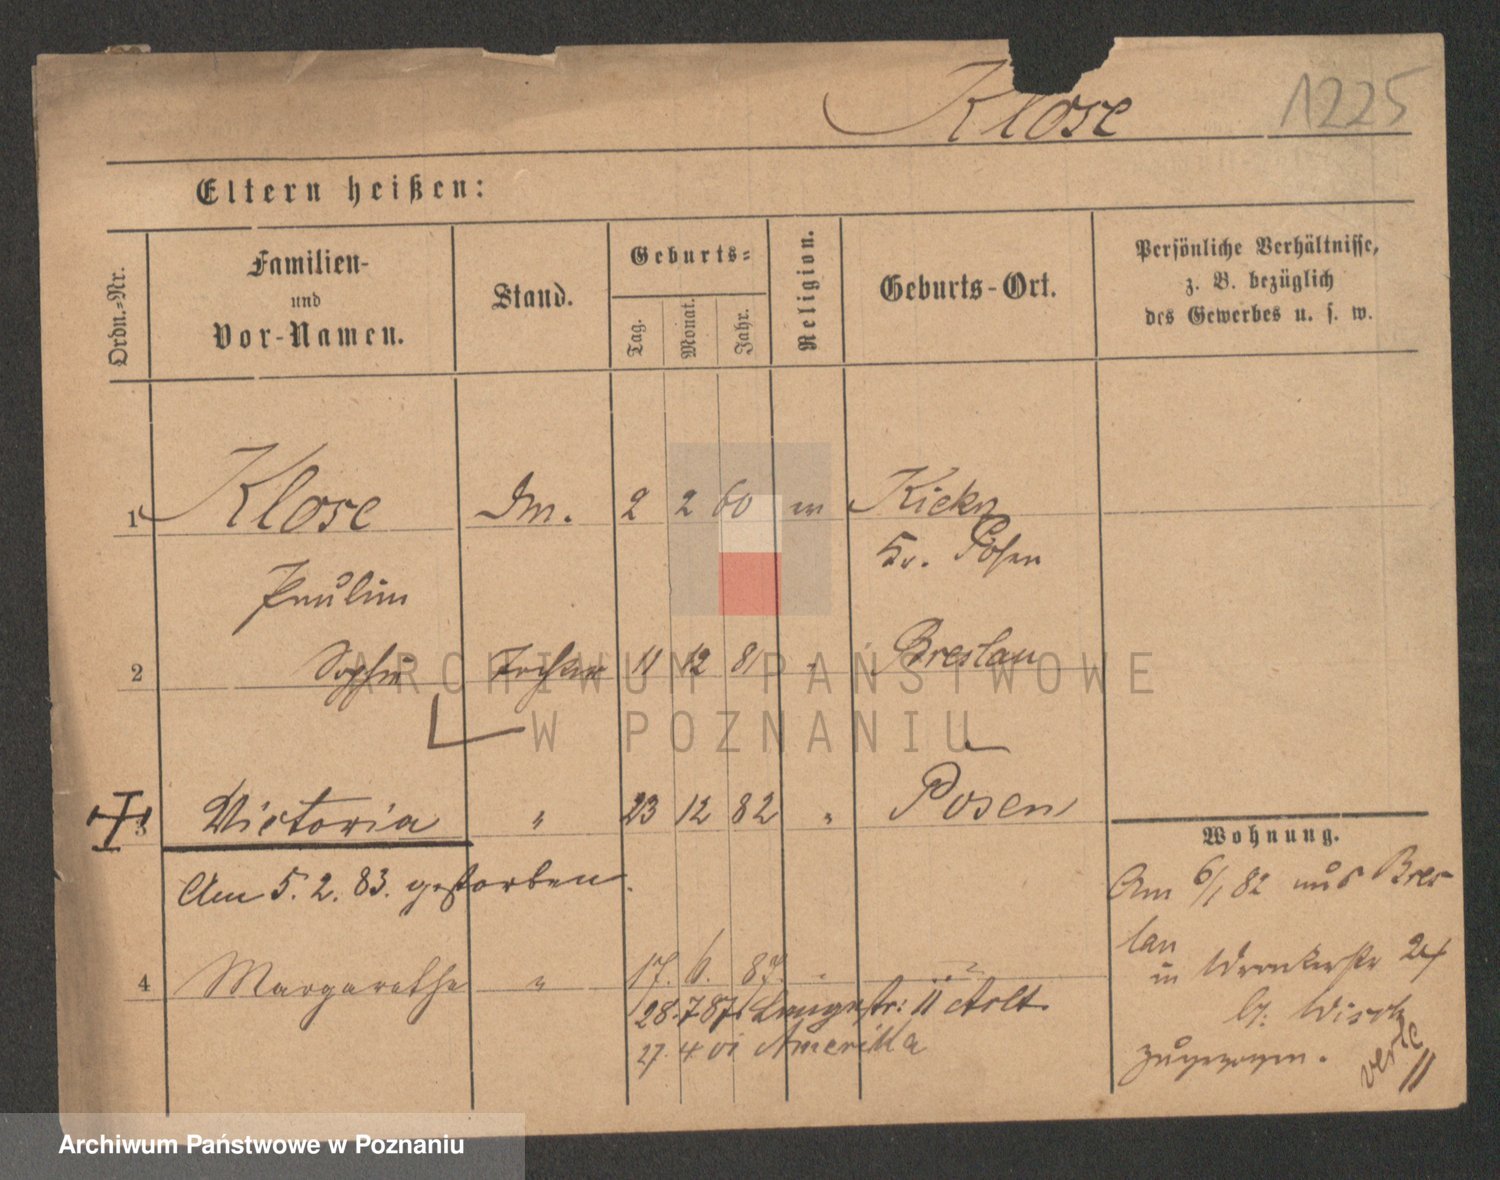 Klose 1225
Eltern heißen:
Ordn.-Nr.
Familien-
und
Vor-Namen.
Stand.
Geburts-
Tag.
Monat.
Jahr.
Religion.
Geburts-Ort.
Persönliche Verhältnisse,
z. B. bezüglich
des Gewerbes u. s. w.
1 Klose 2 2 60 Kiekrz
Kr. Posen
Pauline
2 Sophie Tochter 11 12 81 " Breslau
3 Victoria " 23 12 82 " Posen
Am 5. 2. 83. gestorben.
4 Margarethe " 17. 6. 87. "
28. 7 87 Langestr: 11
27. 4 01 Amerika
Wohnung.
Am 6/1 82 aus Bres
lau
in Wronkerstr 24
b:
zugezogen.
verte
ARCHIWUM PAŃSTWOWE
W POZNANIU
Archiwum Państwowe w Poznaniu